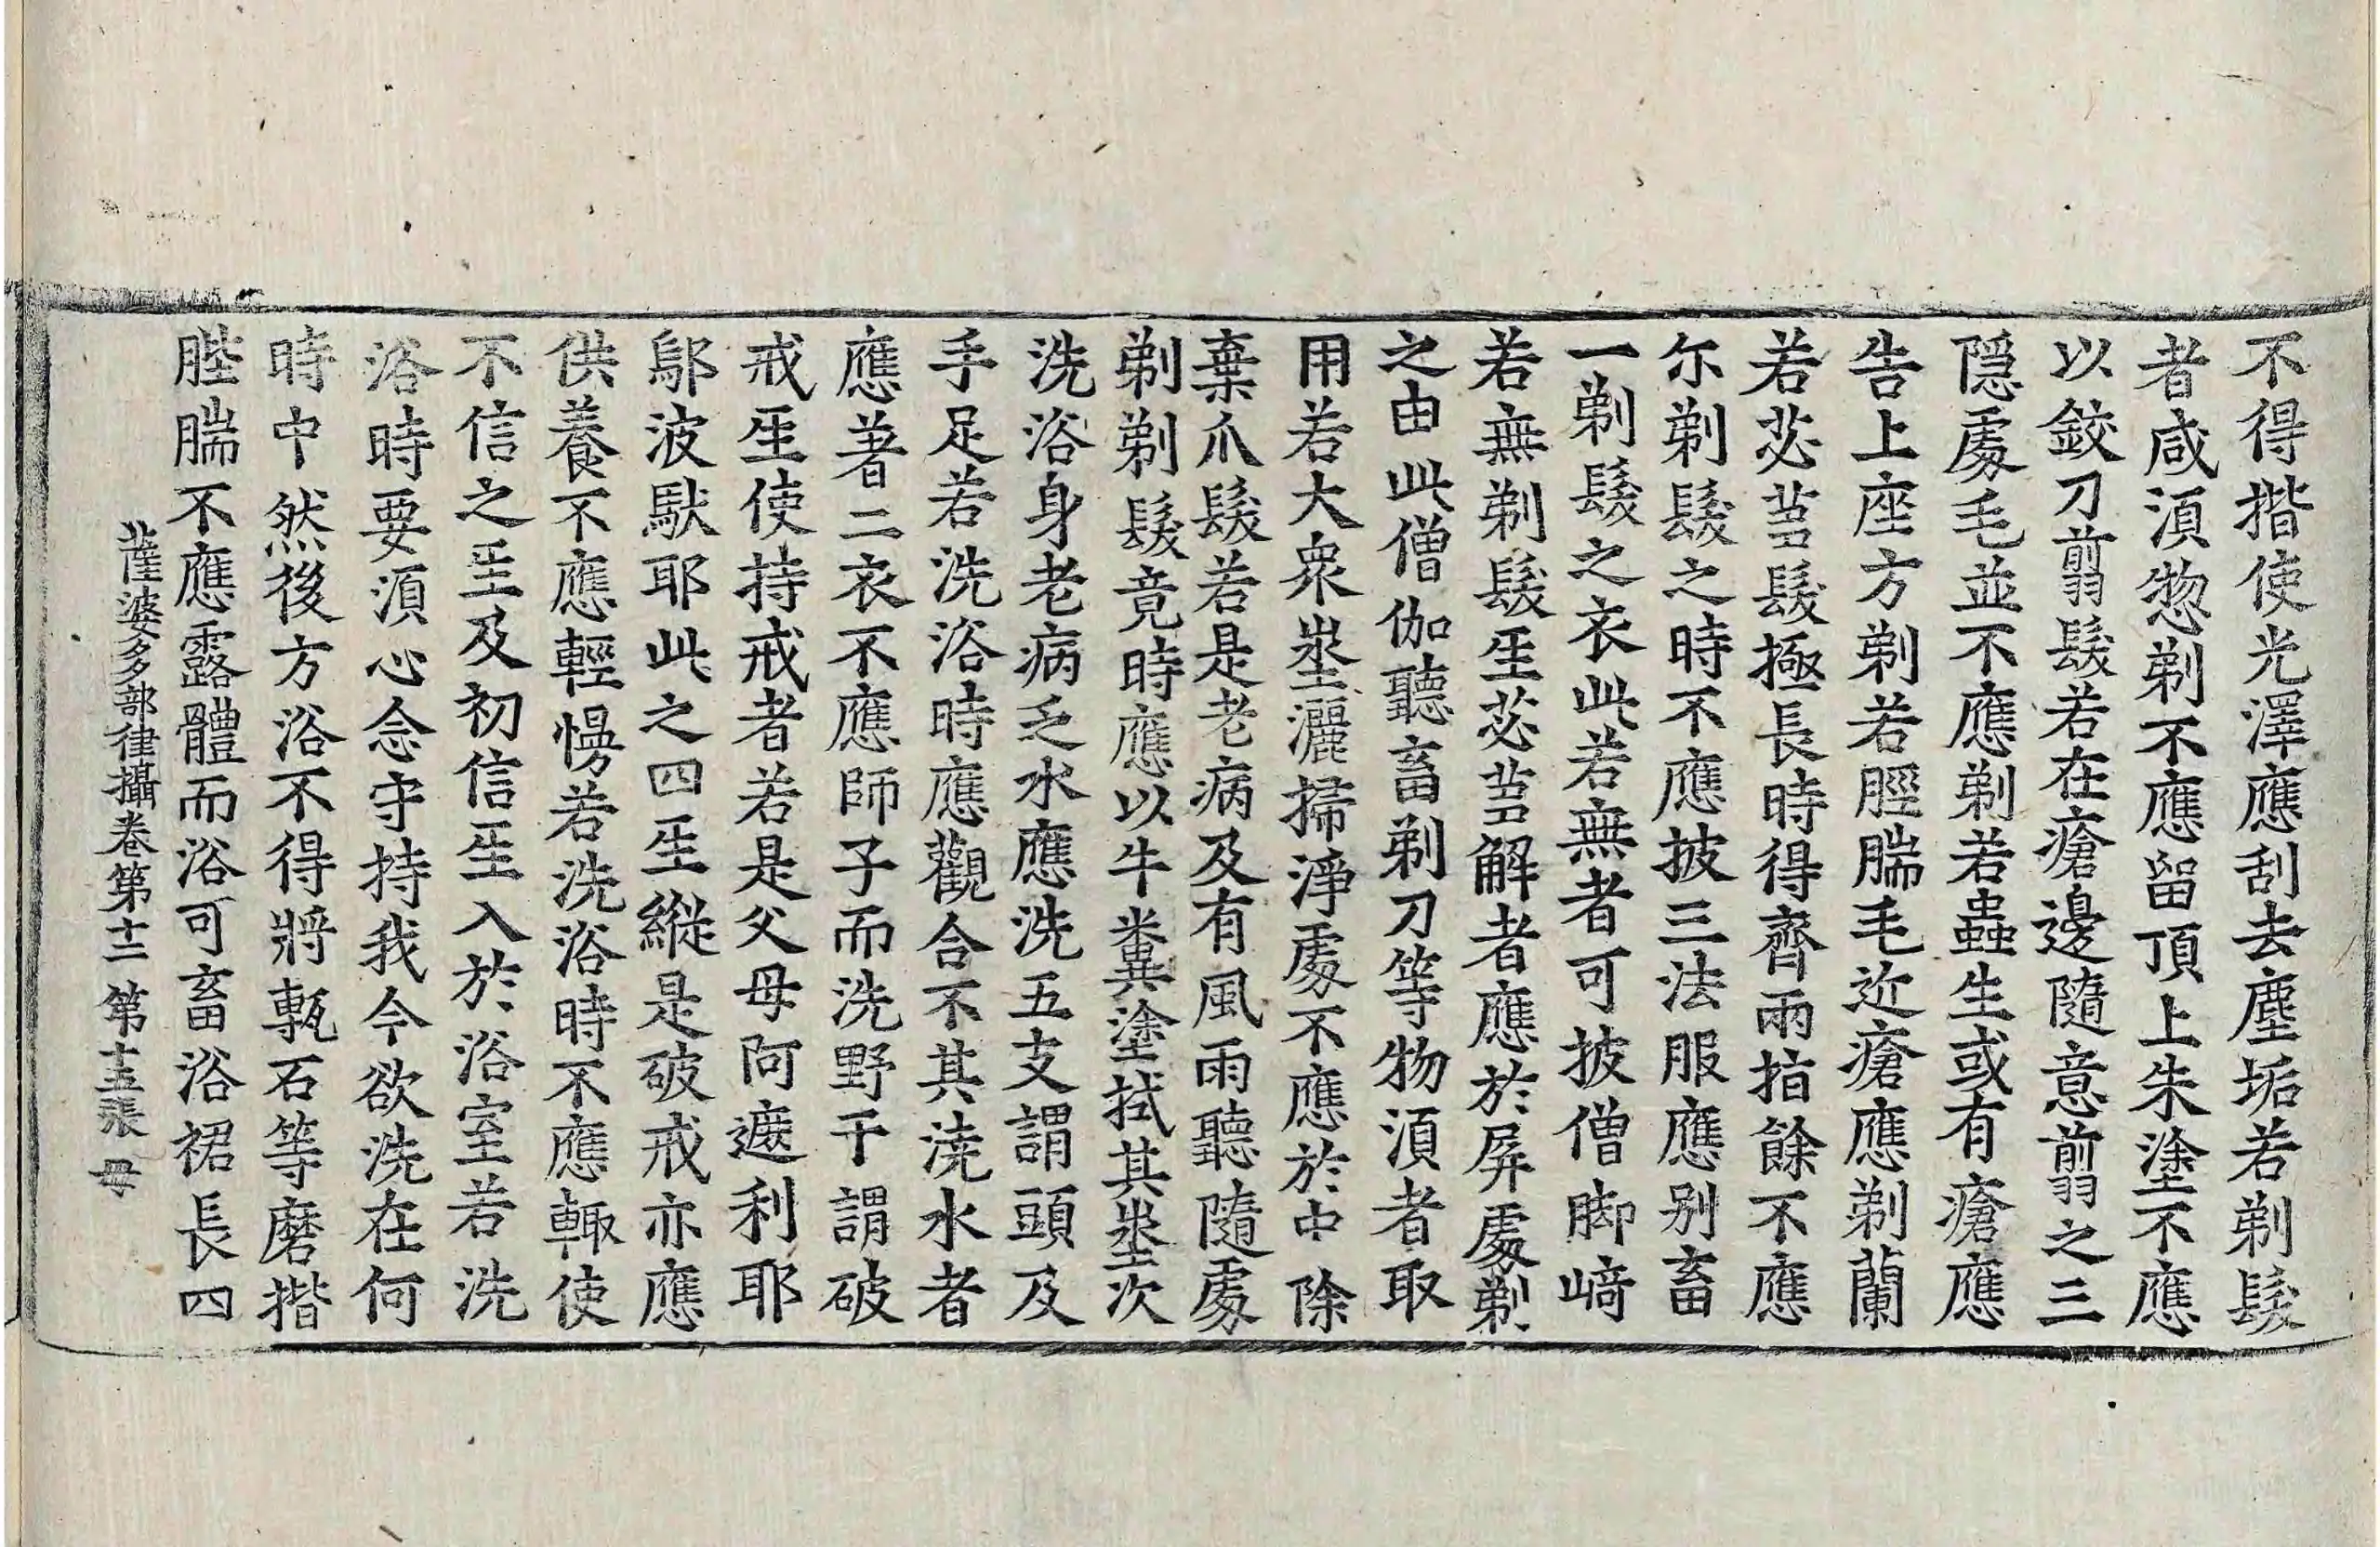 不得揩使光澤應刮去塵垢若剃髮
者咸須惣剃不應留頂上朱塗不應
以鉸刀翦髮若在瘡邊隨意翦之三
隱處毛並不應剃若蟲生或有瘡應
告上座方剃若脛腨毛近瘡應剃蘭
若苾芻髮極長時得齊兩指餘不應
尓剃髮之時不應披三法服應別畜
一剃髮之衣此若無者可披僧脚崎
若無剃髮𤯔苾芻解者應於屏處剃
之由此僧伽聽畜剃刀等物須者取
用若大衆坐灑掃淨處不應於中除
棄爪髮若是老病及有風雨聽隨處
剃剃髮竟時應以牛糞塗拭其坐次
洗浴身老病乏水應洗五支謂頭及
手足若洗浴時應觀合不其澆水者
應著二衣不應師子而洗野干謂破
戒𤯔使持戒者若是父母阿遮利耶
鄔波馱耶此之四𤯔縱是破戒亦應
供養不應輕慢若洗浴時不應輙使
不信之𤯔及初信𤯔入於浴室若洗
浴時要須心念守持我今欲洗在何
時中然後方浴不得將甎石等磨揩
䏶腨不應露體而浴可畜浴裙長四
薩婆多部律攝卷第十二 第十五張 母